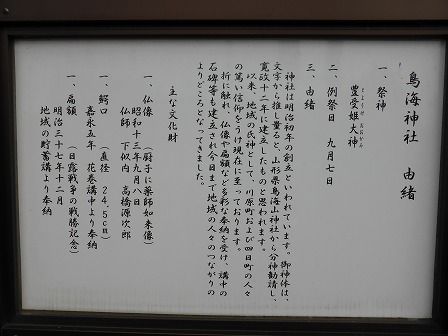 鳥海神社 由緒
一、祭神
豊受姫大神
二、例祭日 九月七日
三、由緒
神社は明治初年の創立といわれています。御神体は、
文字から推し量ると、山形県鳥海山神社から分神勧請し、
寛政十二年に建立したものと思われます。
以来、地域の氏神として、川原町および四日町の人々
の篤い信仰をうけ現在に至っております。
折に触れ、仏像や扁額など多彩な奉納を受け、講中の
石碑等も建立され今日まで地域の人々のつながりの
よりどころとなってきました。
主な文化財
一、仏像 (厨子に薬師如来像)
昭和十三年九月八日
仏師 下似内 高橋源次郎
一、鰐口 (直径 24,5cm)
嘉永五年 花巻講中より奉納
一、扁額 (日露戦争の戦勝記念)
明治三十七年十二月
地域の貯蓄講より奉納